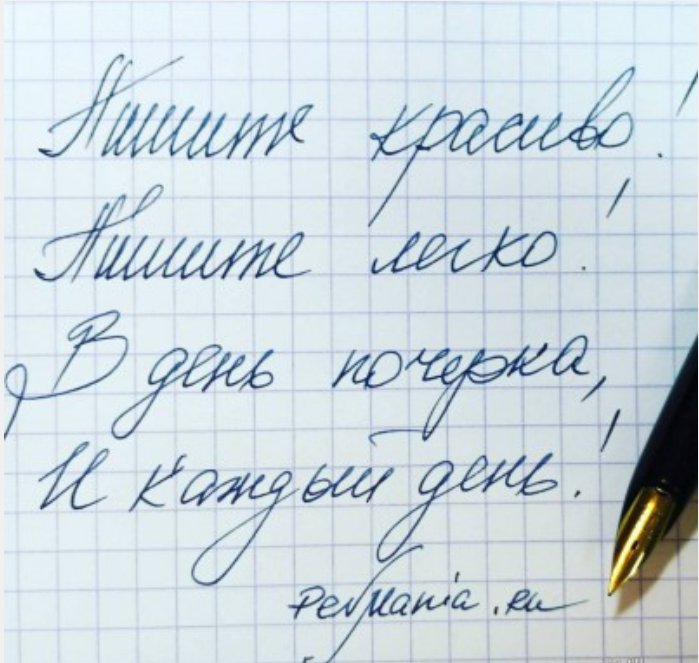 Пишите красиво!
Пишите легко!
В день почерка,
И каждый день!
Penmania.ru